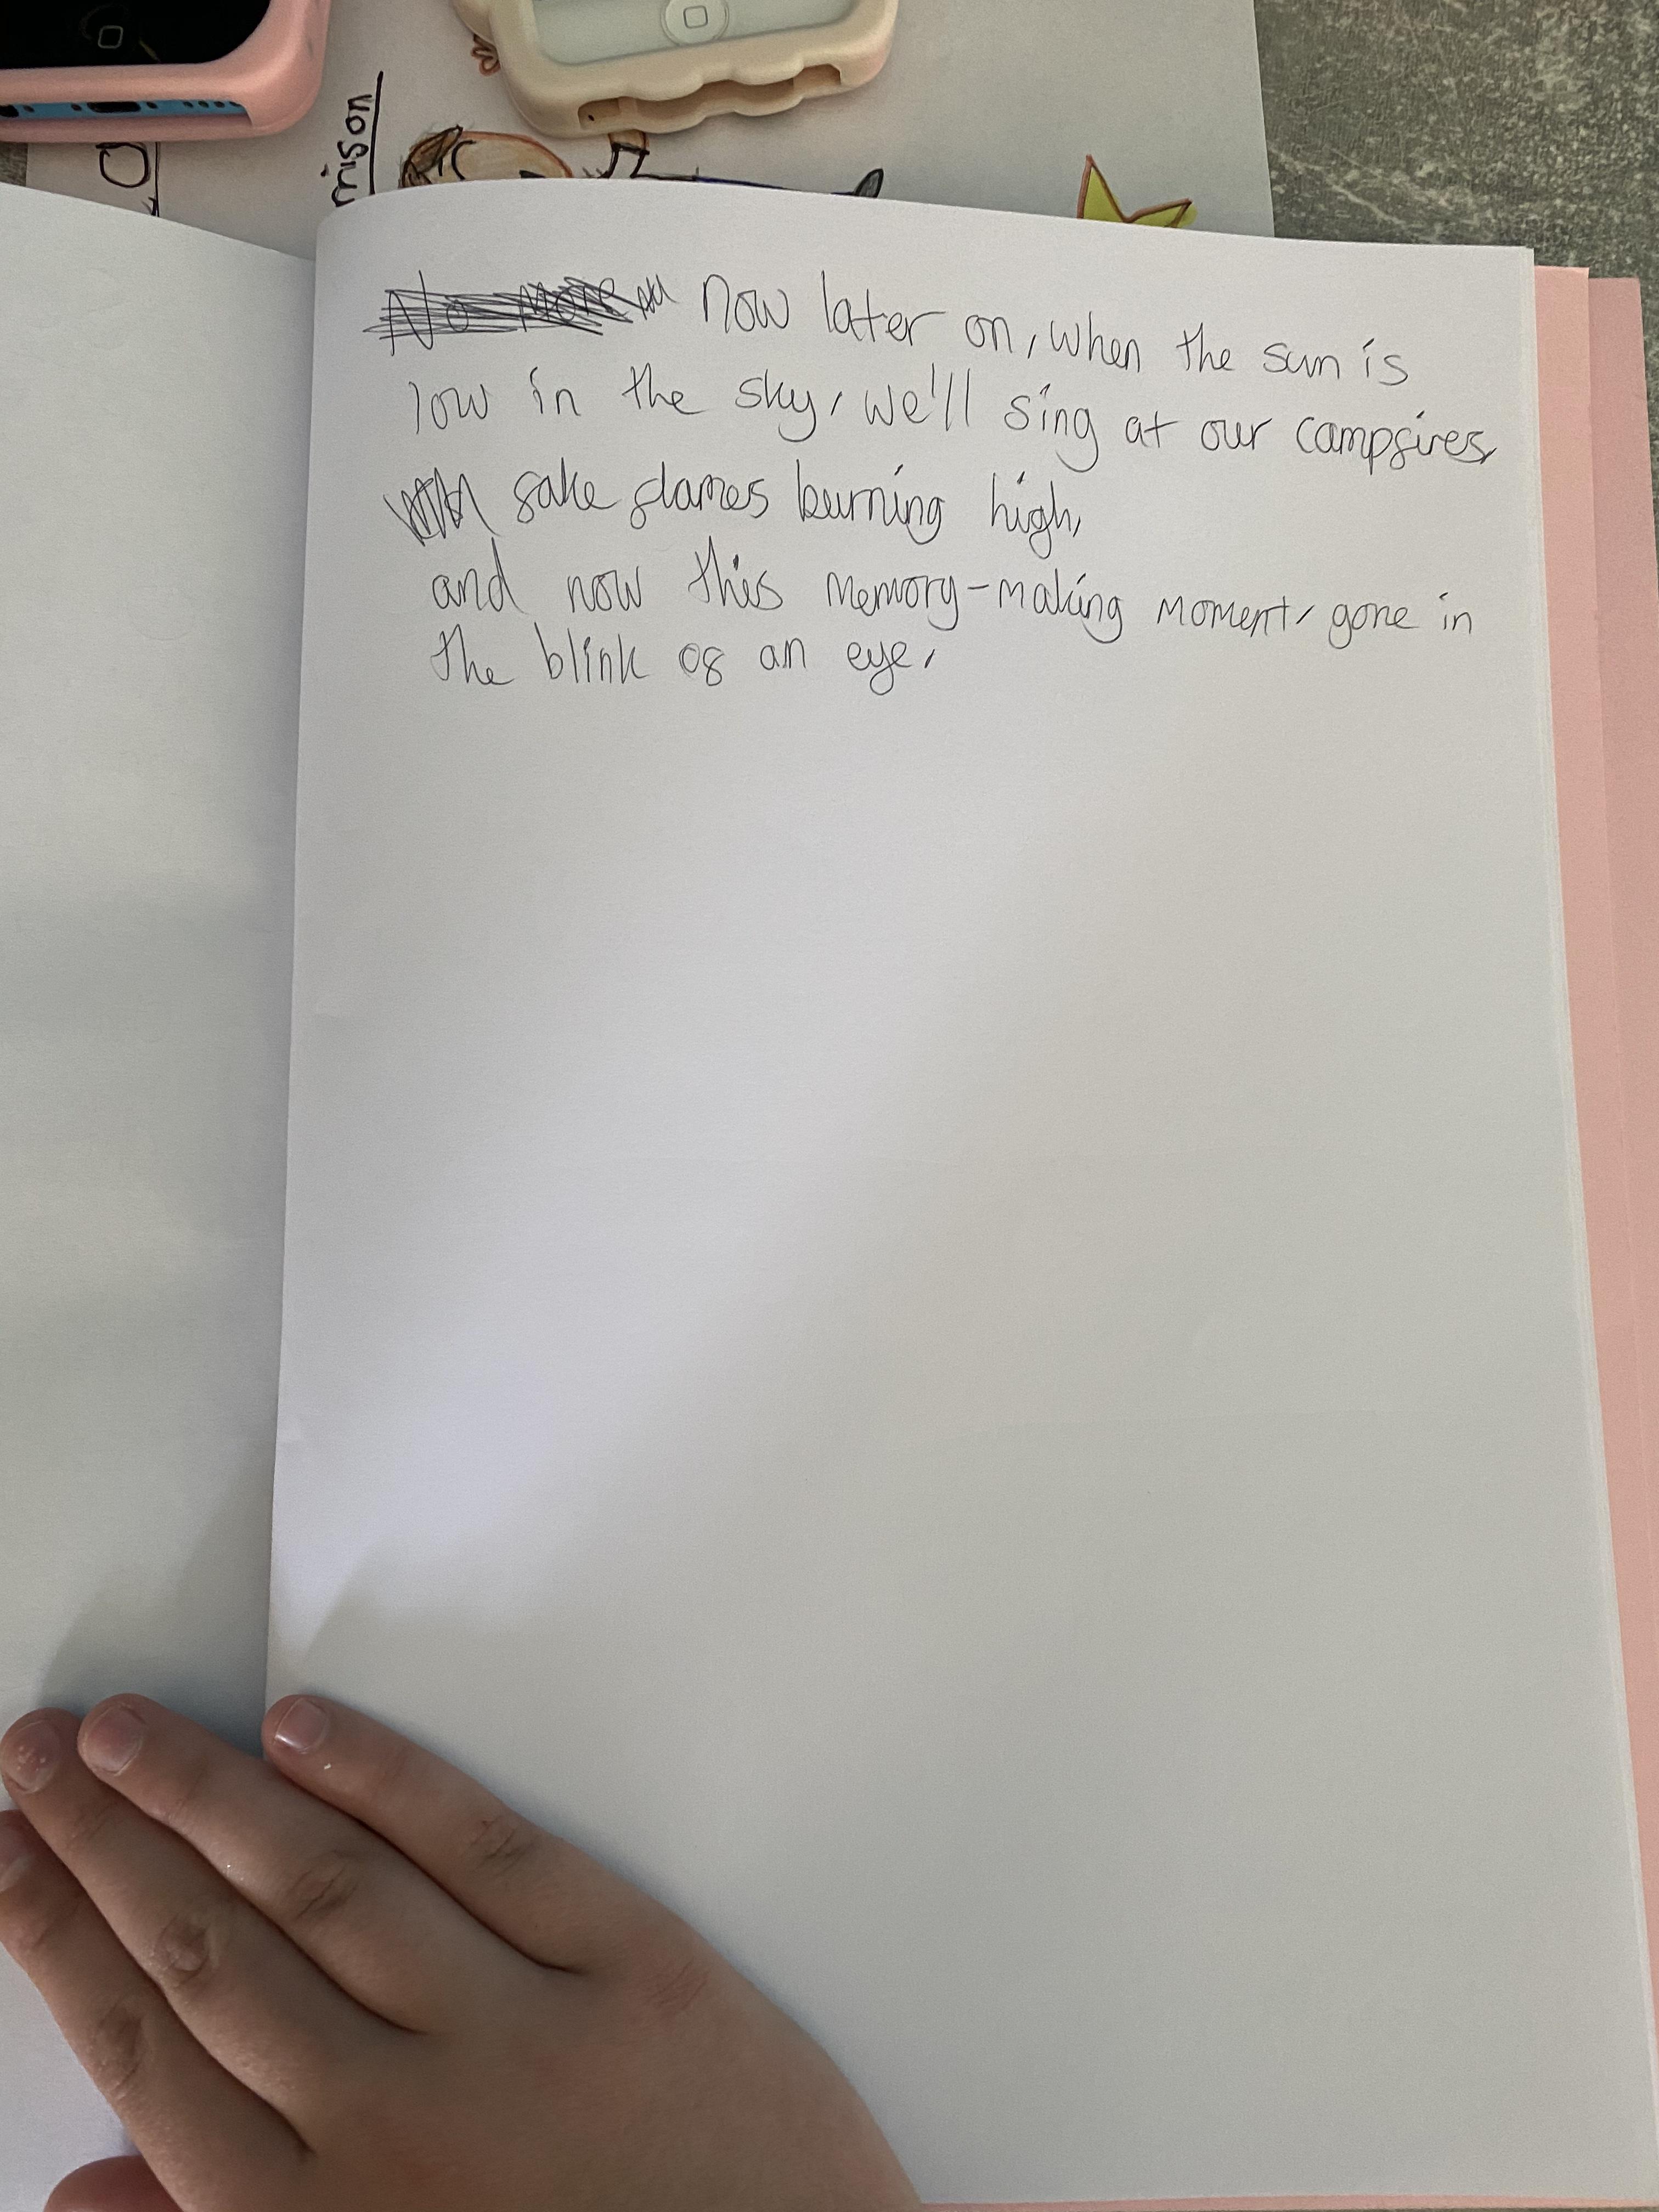 mison
No more now later on, when the sun is
low in the sky, we'll sing at our campfires,
fake flames burning high,
and now this memory-making moment, gone in
the blink of an eye,